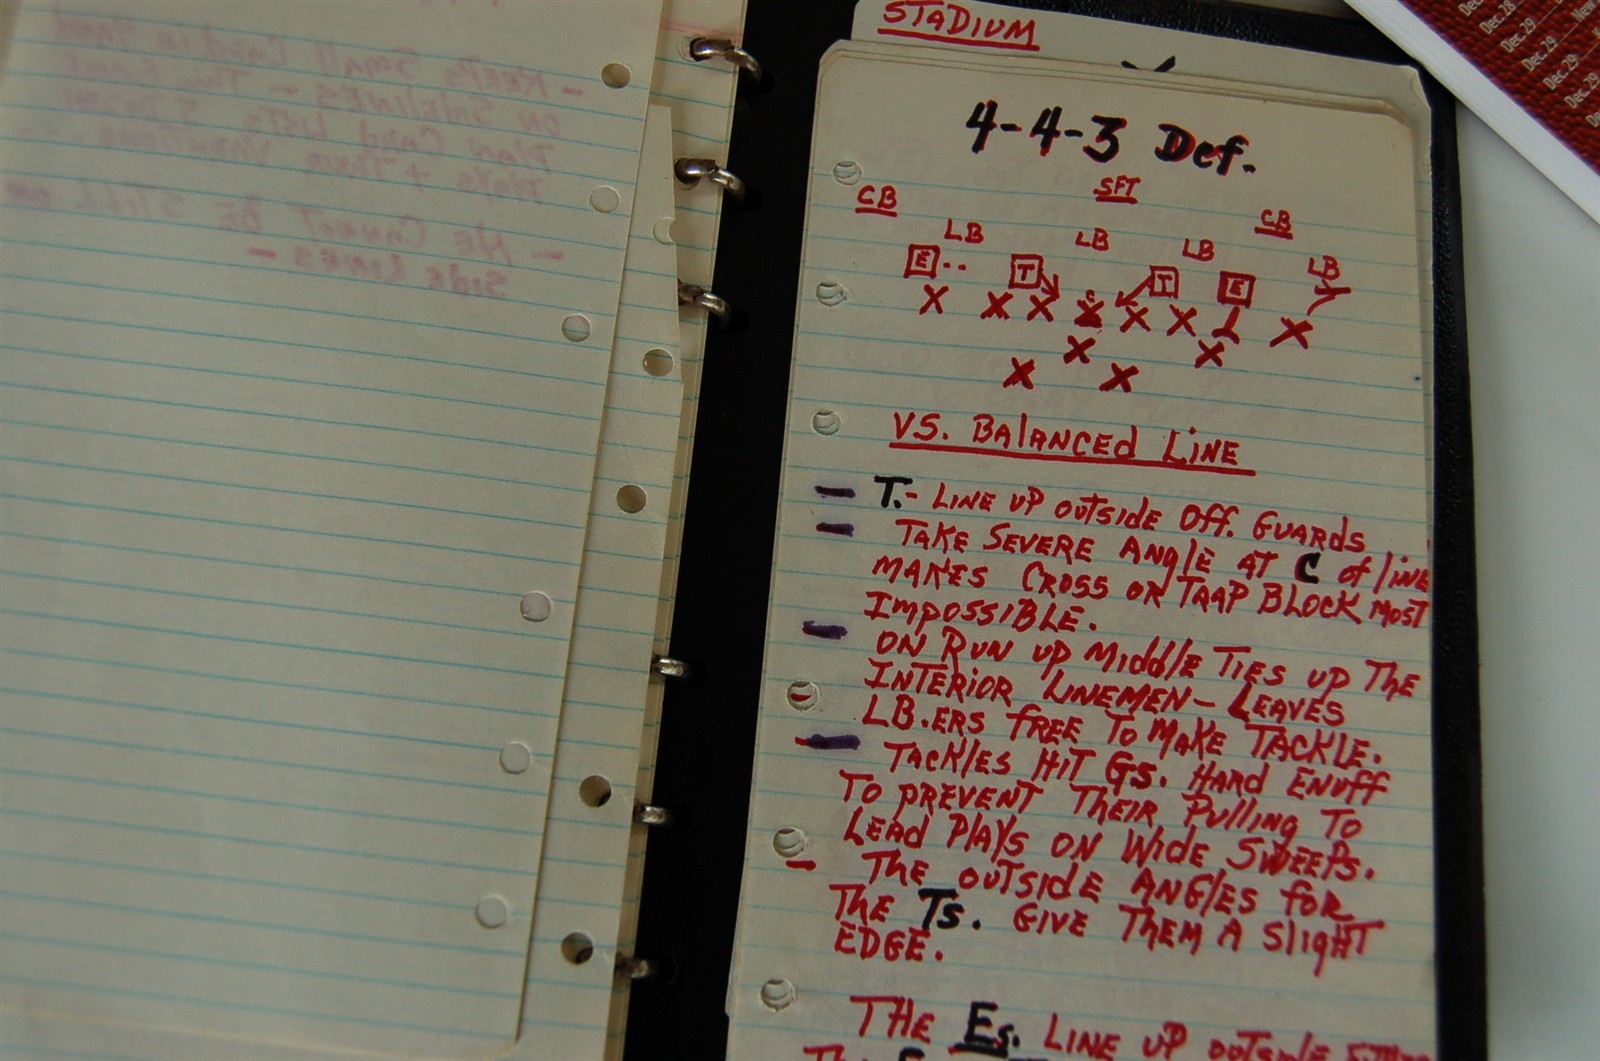 - KEEPS SMALL CARD IN HAND
ON SIDELINES - THIS GAME
PLAN CARD LISTS 5 DOWN
PLAYS + THEIR VARIATIONS...
- HE CANNOT BE STILL ON
SIDE LINES -
STADIUM
4-4-3 Def.
CB SFT CB
LB LB LB LB
E.. T T E
X X X C X X X X
X X
X X
VS. BALANCED LINE
— T.- LINE UP OUTSIDE Off. GUARDS
— TAKE SEVERE ANGLE AT C of line
MAKES CROSS OR TRAP BLOCK MOST
IMPOSSIBLE.
— ON RUN UP MIDDLE TIES UP THE
INTERIOR LINEMEN - LEAVES
LB.ERS FREE TO MAKE TACKLE.
— TACKLES HIT GS. HARD ENUFF
TO PREVENT THEIR PULLING TO
LEAD PLAYS ON WIDE SWEEPS.
- THE OUTSIDE ANGLES FOR
THE TS. GIVE THEM A SLIGHT
EDGE.
THE Es. LINE UP OUTSIDE
Dec. 28
Dec. 29
Dec. 29
Dec. 29
Dec. 29
New